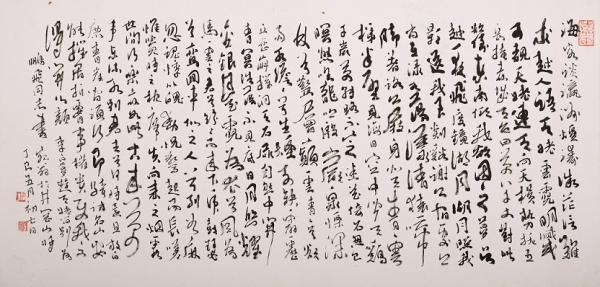 海客談瀛洲烟濤微茫信難
求越人語天姥雲霓明滅
或可覩天姥連天向天橫勢拔五
岳掩赤城天台四万八千丈對此
欲倒東南傾我欲因之夢吴
越一夜飛度鏡湖月湖月照我
影送我至剡溪謝公宿處今
尚在淥水蕩漾清猿啼
脚著謝公屐身登青雲梯
半壁見海日空中聞天鷄
千巖萬轉路不定迷花倚石忽已
暝熊咆龍吟殷巖泉慄深
林兮驚層巔雲青青兮欲
雨水澹澹兮生煙列缺霹靂
丘巒崩摧洞天石扉訇然中開
青冥浩蕩不見底日月照耀
金銀臺霓為衣兮風為馬
雲之君兮紛紛而來下虎鼓瑟
兮鸞回車仙之人兮列如麻
忽魂悸以魄動怳驚起而長嗟
惟覺時之枕席失向來之烟霞
世間行樂亦如此古來萬
事東流水別君去兮何時還且放白
鹿青崖間須行即騎訪名山安
能摧眉折腰事權貴使我不
得開心顏
李白夢游天姥吟留別
鵬飛同志書 井岡山時
丁巳五月初七日